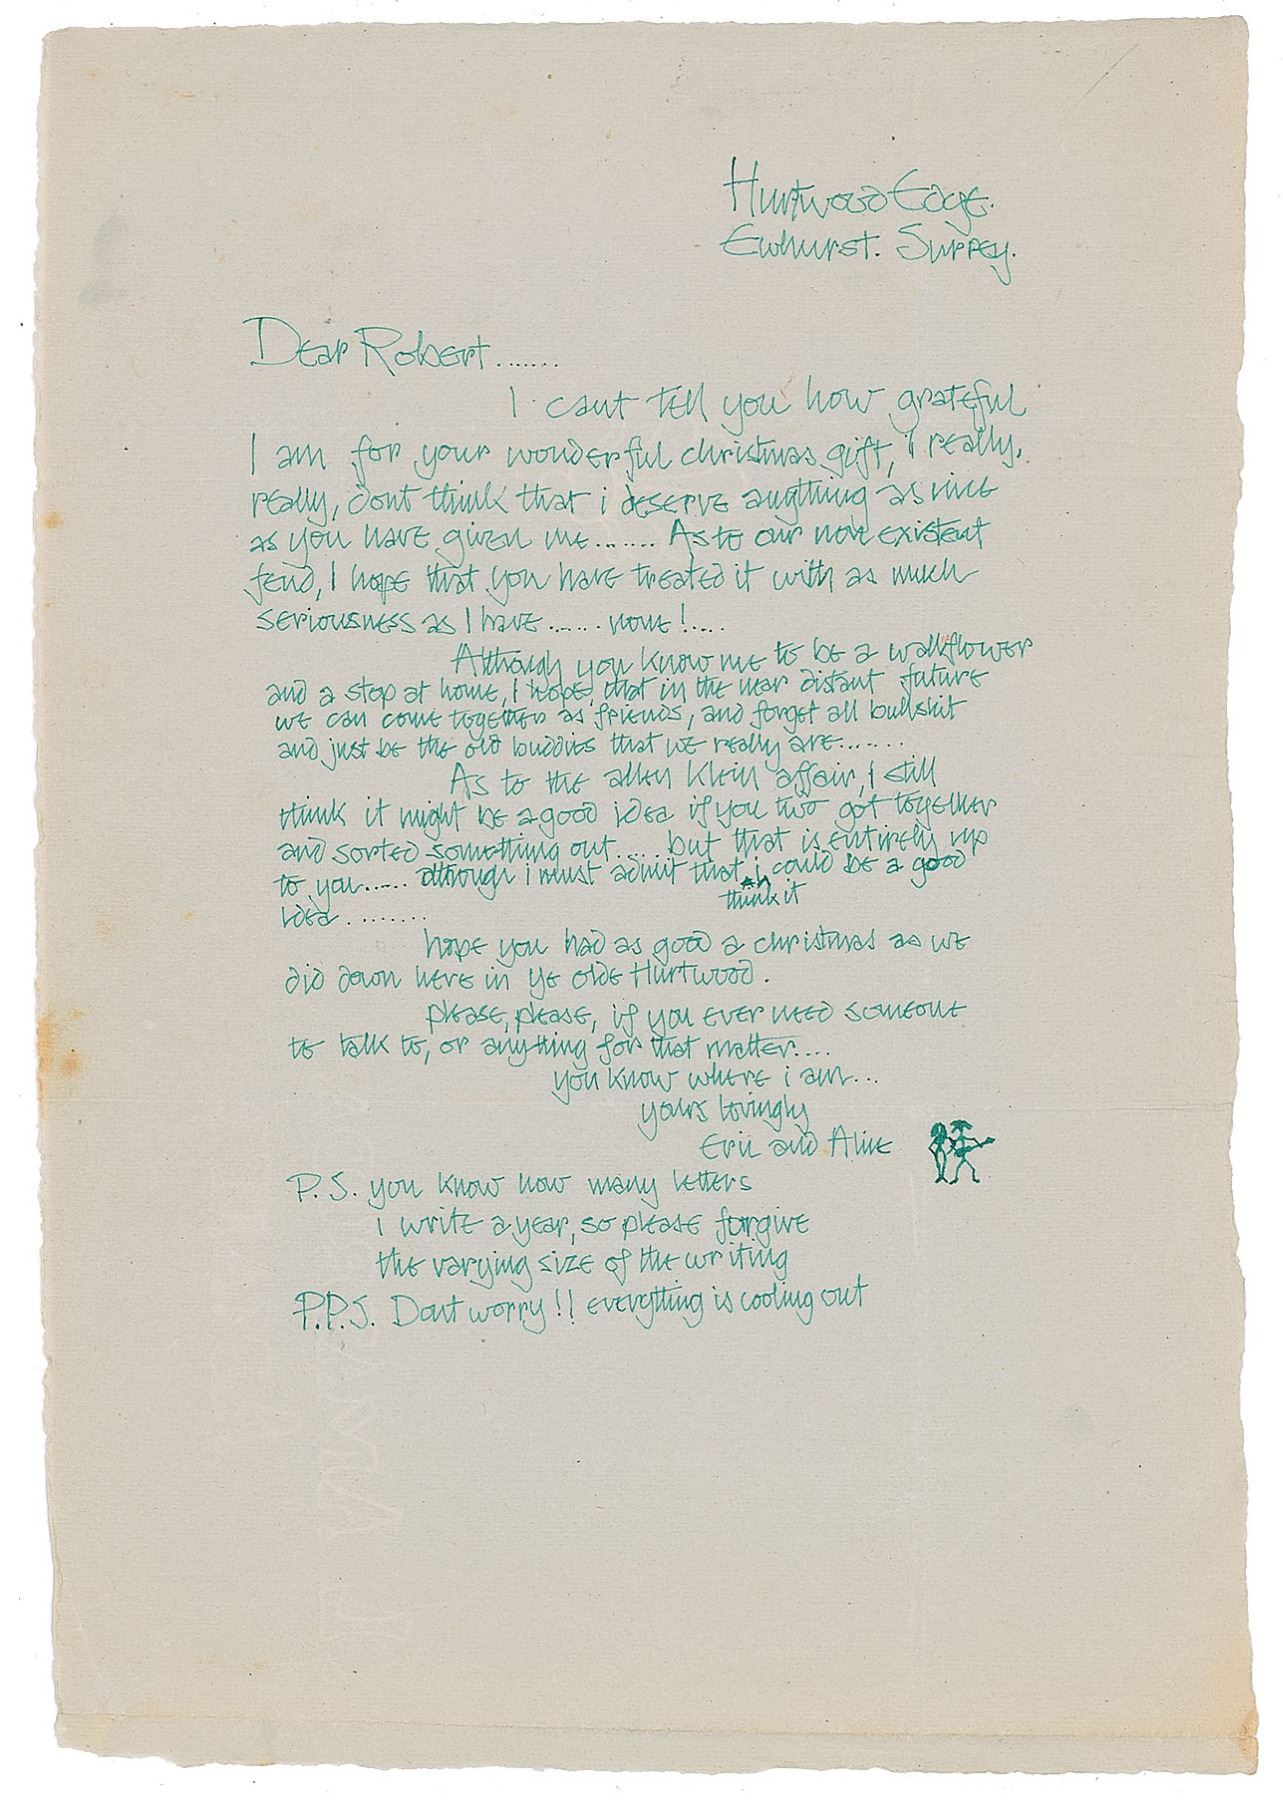 Hurtwood Edge.
Ewhurst. Surrey.
Dear Robert.......
I cant tell you how grateful
I am for your wonderful christmas gift, i really,
really, dont think that i deserve anything as nice
as you have given me....... As to our non existent
feud, I hope that you have treated it with as much
seriousness as I have...... none!....
Although you know me to be a wallflower
and a stop at home, I hope, that in the near distant future
we can come together as friends, and forget all bullshit
and just be the old buddies that we really are.......
As to the allen Klein affair, I still
think it might be a good idea if you two got together
and sorted something out..... but that is entirely up
to you...... although i must admit that i could be a good
think it
idea........
hope you had as good a christmas as we
did down here in ye olde Hurtwood.
please, please, if you ever need someone
to talk to, or anything for that matter....
you know where i am...
yours lovingly
Eric and Alice
P.S. you know how many letters
I write a year, so please forgive
the varying size of the writing
P.P.S. Dont worry!! everything is cooling out